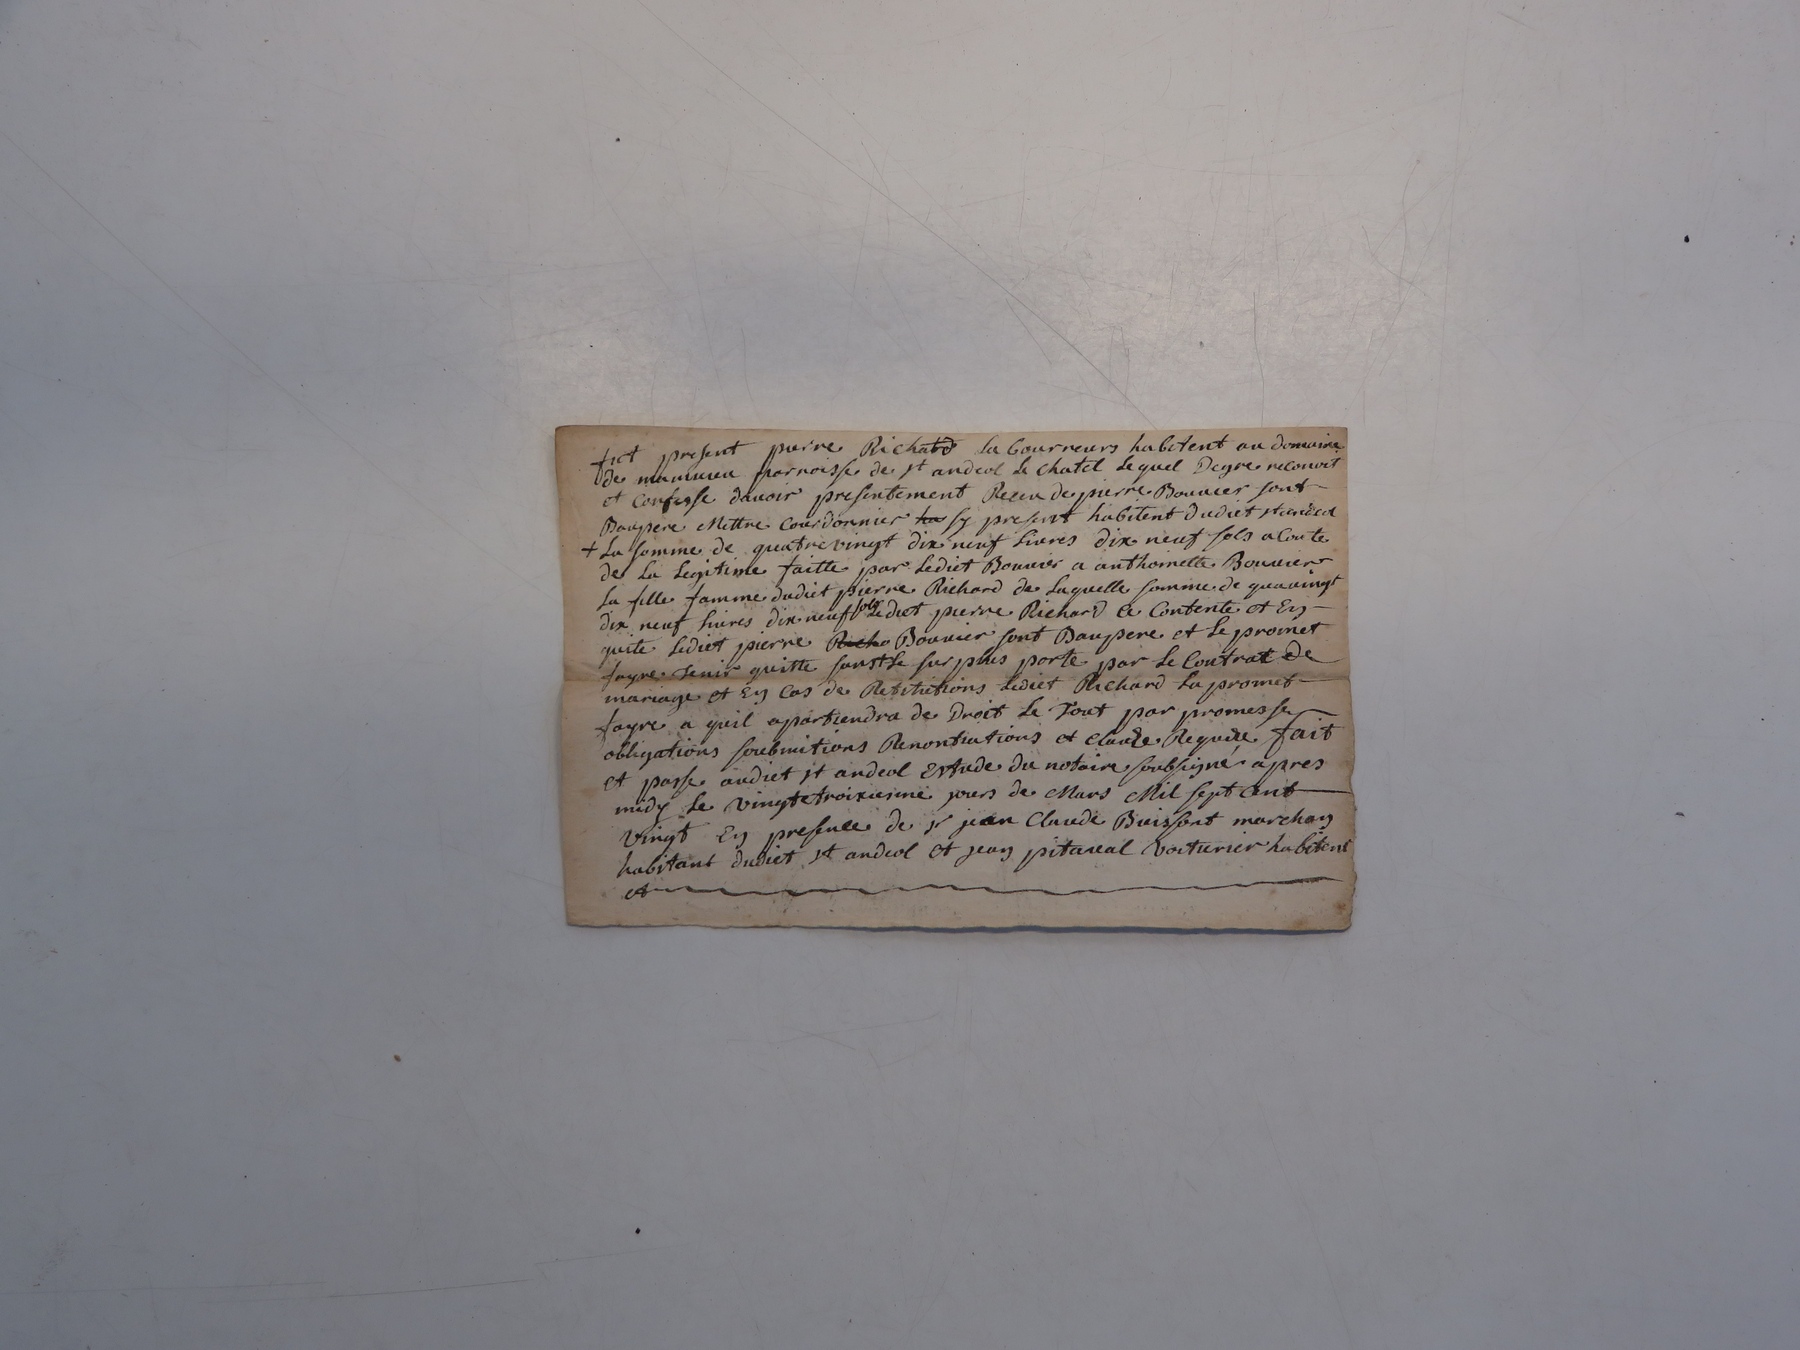 fut present pierre Richard La Bourreurs habitent au domaine
de parroisse de st andeol le chatel Lequel Degre reconoit
et Confesse davoir presentement Receu de pierre Bouvier sont
Baupere Mettre Courdonnier sy present habitent dudict st andeol
+ La somme de quatrevingt dix neuf Livres dix neuf sols a Conte
de La Legitime faitte par Ledict Bouvier a anthoinette Bouvier
La fille famme dudict pierre Richard de Laquelle somme de quavingt
dix neuf Livres dix neuf sols Ledict pierre Richard Ce Contente et En
quite Ledict pierre Richa Bouvier sont Baupere et Le promet
fayre Tenir quitte le surplus porte par Le Contrat de
mariage et En Cas de Restitutions Ledict Richard La promet
fayre a quil apartiendra de Droit Le Tout par promesse
obligations soubmitions Renontiations et Clauze Requize fait
et passe audict st andeol Estude du notaire soubsigné apres
midy Le vingtetroixiesme jours de Mars Mil sept cent
vingt En presence de sr jean Claude Buissont marchan
habitant dudict st andeol et jean pitaval voiturier habitent
et